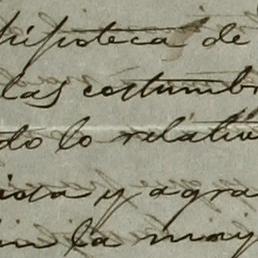 hipoteca de
las costumb
do lo relativ
ida y agra
in la may